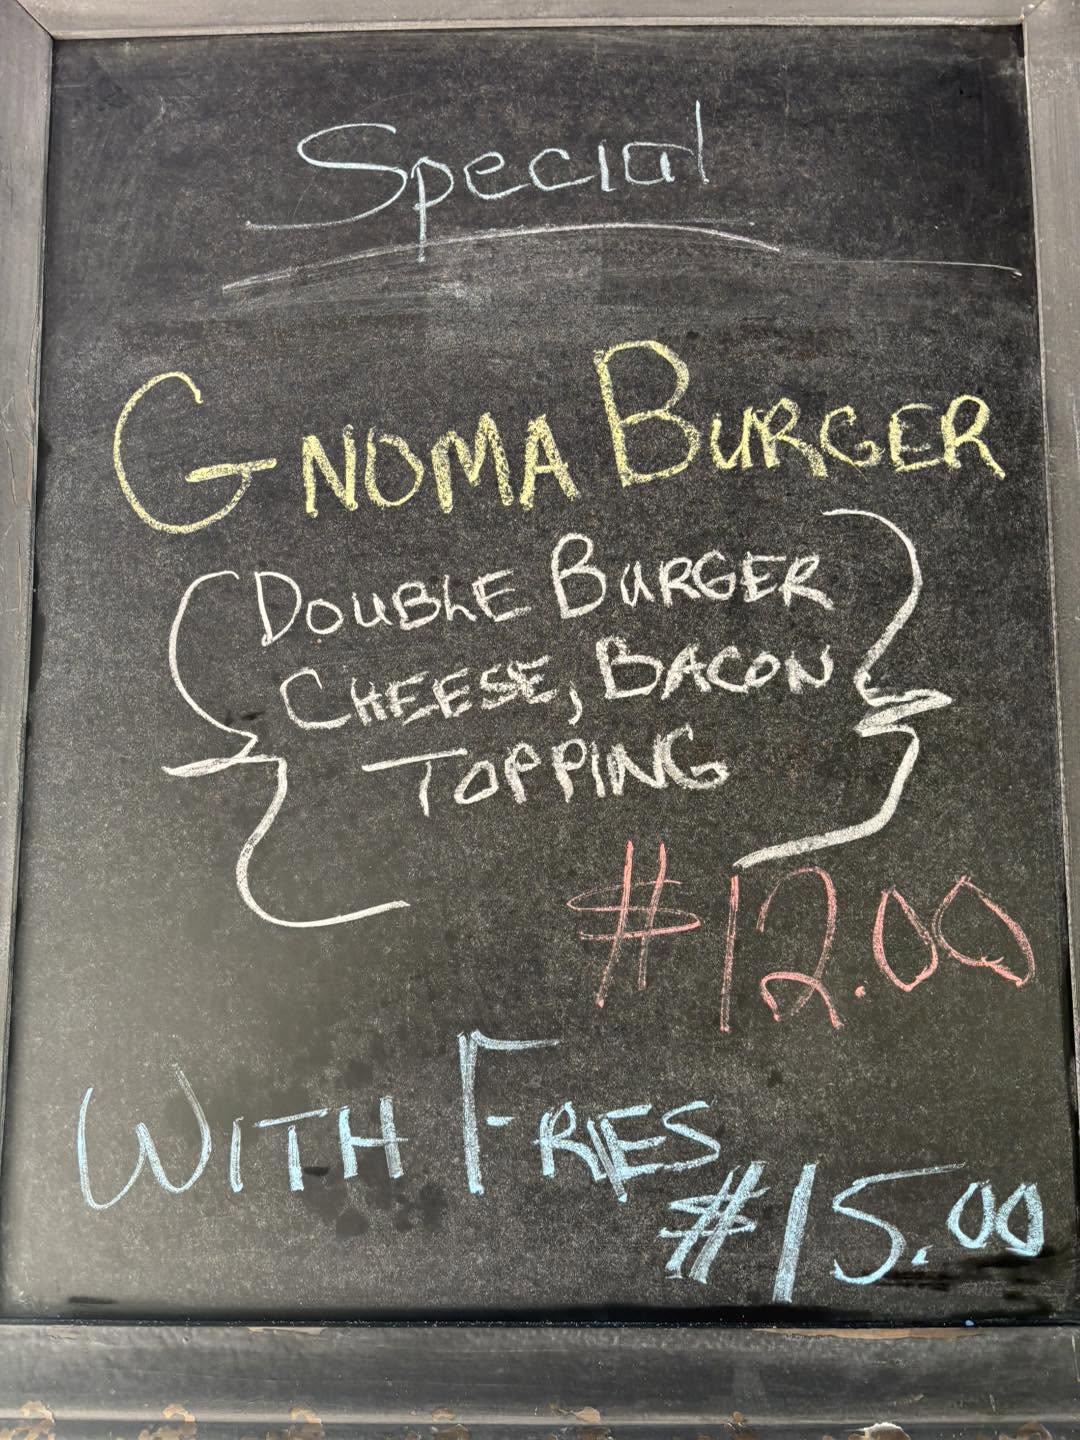 Special
GNOMA BURGER
{DOUBLE BURGER
CHEESE, BACON
TOPPING}
$12.00
WITH FRIES
$15.00